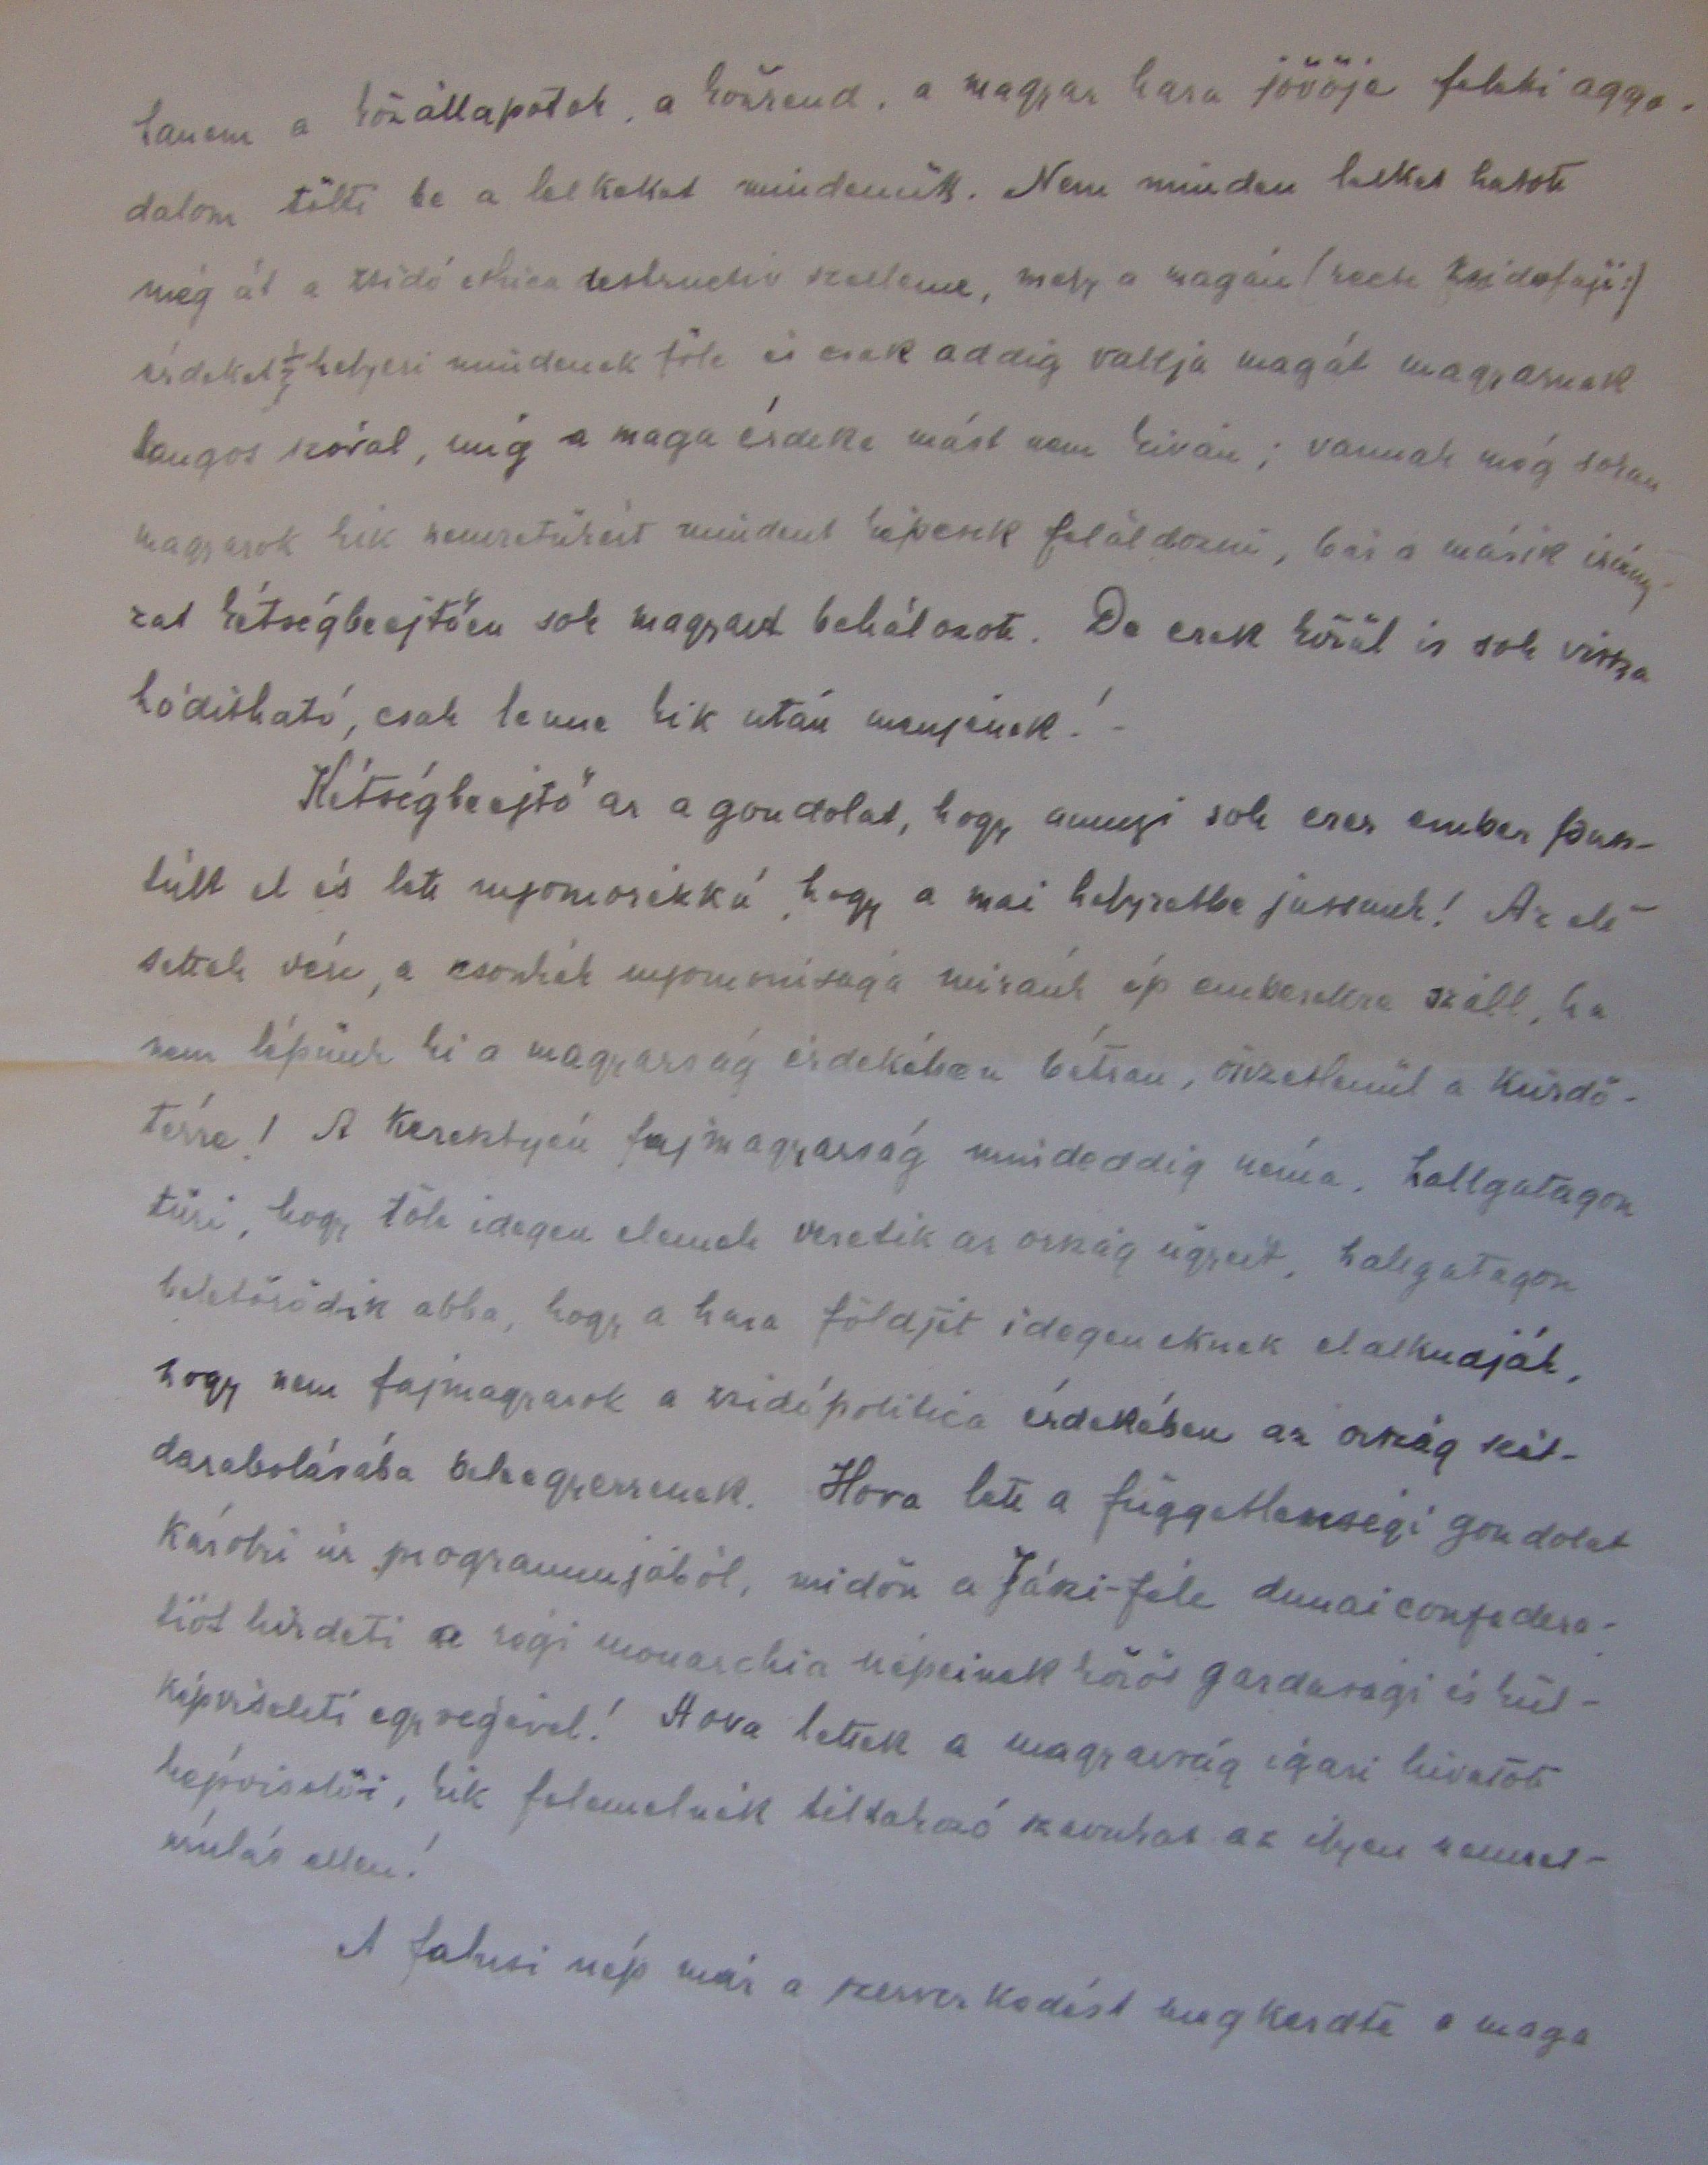 hanem a közállapotok, a közrend, a magyar haza jövője feletti aggo-
dalom tölti be a lelkeket mindenütt. Nem minden lelket hatott
még át a zsidó ethica destructiv szelleme, mely a magán (recte zsidófaji:)
érdeket helyezi mindenek fölé és csak addig vallja magát magyarnak
hangos szóval, míg a maga érdeke mást nem kiván; vannak még sokan
magyarok kik nemzetükért mindent képesek feláldozni, bár a másik irány-
zat kétségbeejtően sok magyart behálozott. De ezek közül is sok vissza
hódítható, csak lenne kik után menjenek! -
Kétségbeejtő az a gondolat, hogy annyi sok ezer ember pusz-
túlt el és lett nyomorékká, hogy a mai helyzetbe jussunk! Az ele-
settek vére, a csonkák nyomorúsága miránk ép emberekre száll, ha
nem lépünk ki a magyarság érdekében bátran, önzetlenül a küzdő-
térre! A keresztyén fajmagyarság mindeddig néma. Hallgatagon
tűri, hogy tőle idegen elemek vezetik az ország ügyeit, hallgatagon
beletörődik abba, hogy a haza földjét idegeneknek elalkudják,
hogy nem fajmagyarok a zsidópolitica érdekében az ország szét-
darabolásába beleegyezzenek. Hova lett a függetlenségi gondolat
Károlyi úr programmjából, midőn a Jászi-féle dunai confedera-
tiót hirdeti a régi monarchia népeinek közös gazdasági és kül-
képviseleti egységével! Hova lettek a magyarság igazi hivatott
képviselői, kik felemelnék tiltakozó szavukat az ilyen nemzet-
árulás ellen!
A falusi nép már a szervezkedést megkezdte a maga